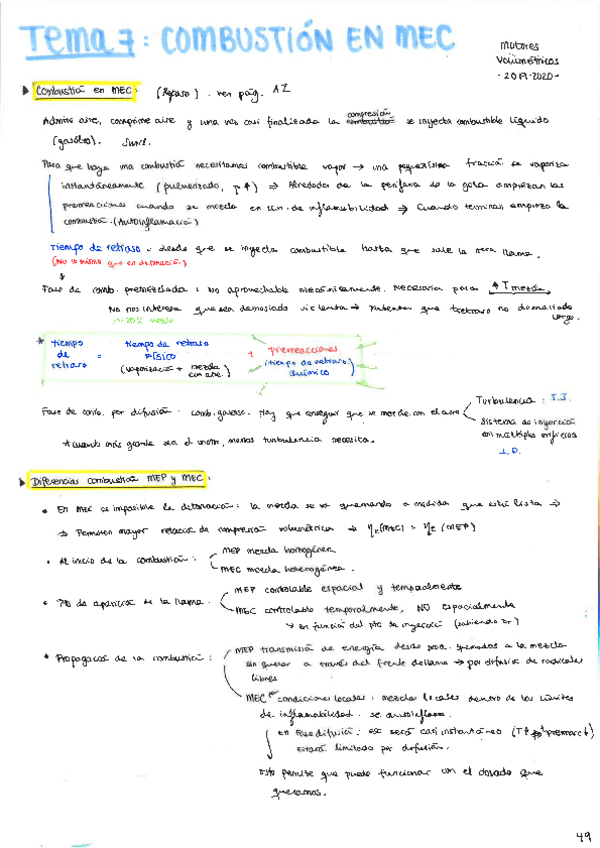 Tema 7: COMBUSTIÓN EN MEC
Motores
Volumétricos
- 2019-2020 -
Combustión en MEC: (Repaso). ver pág. A2
compresión
Admite aire, comprime aire y una vez casi finalizada la combustión se inyecta combustible líquido
(gasóleo).
Para que haya una combustión necesitamos combustible vapor → una pequeñísima fracción se vaporiza
instantáneamente (pulverizado, T↑) ⇒ Alrededor de la periferia de la gota empiezan las
prerreacciones cuando se mezcla en lím. de inflamabilidad ⇒ Cuando terminan, empieza la
combustión. (Autoinflamació)
Tiempo de retraso: desde que se inyecta combustible hasta que sale la 1era llama.
(No es mismo que en detonación)
Fase de comb. premezclada: no aprovechable mecánicamente. Necesaria para ↑T mezcla
No nos interesa que sea demasiado violenta → Intentar que t retraso no demasiado
largo.
* tiempo de retraso = tiempo de retraso FÍSICO + prerreacciones
(vaporización + mezcla con aire) (tiempo de retraso químico)
Fase de comb. por difusión: comb. gaseoso. Hay que conseguir que se mezcle con el aire
Turbulencia: I.I.
Sistema de inyección
con múltiples orificios
I.D.
* cuanto más grande sea el motor, menos turbulencia necesita.
Diferencias combustión MEP y MEC:
• En MEC es imposible la detonación: la mezcla se va quemando a medida que esté lista ⇒
⇒ Permiten mayor relación de compresión volumétrica
• Al inicio de la combustión: MEP mezcla homogénea
MEC mezcla heterogénea.
• Pto de aparición de la llama. MEP controlable espacial y temporalmente
MEC controlable temporalmente, NO espacialmente
↳ en función del pto de inyecció (sabiendo tr)
• Propagación de la combustión: MEP transmisión de energía desde prod. quemados a la mezcla
sin quemar a través del frente de llama → por difusión de radicales
libres
MEC por condiciones locales: mezclas locales dentro de los límites
de inflamabilidad. se autoinflama.
En Fase difusión: esc será casi instantáneo
Estará limitado por difusión.
Esto permite que pueda funcionar con el dosado que
queramos.
49